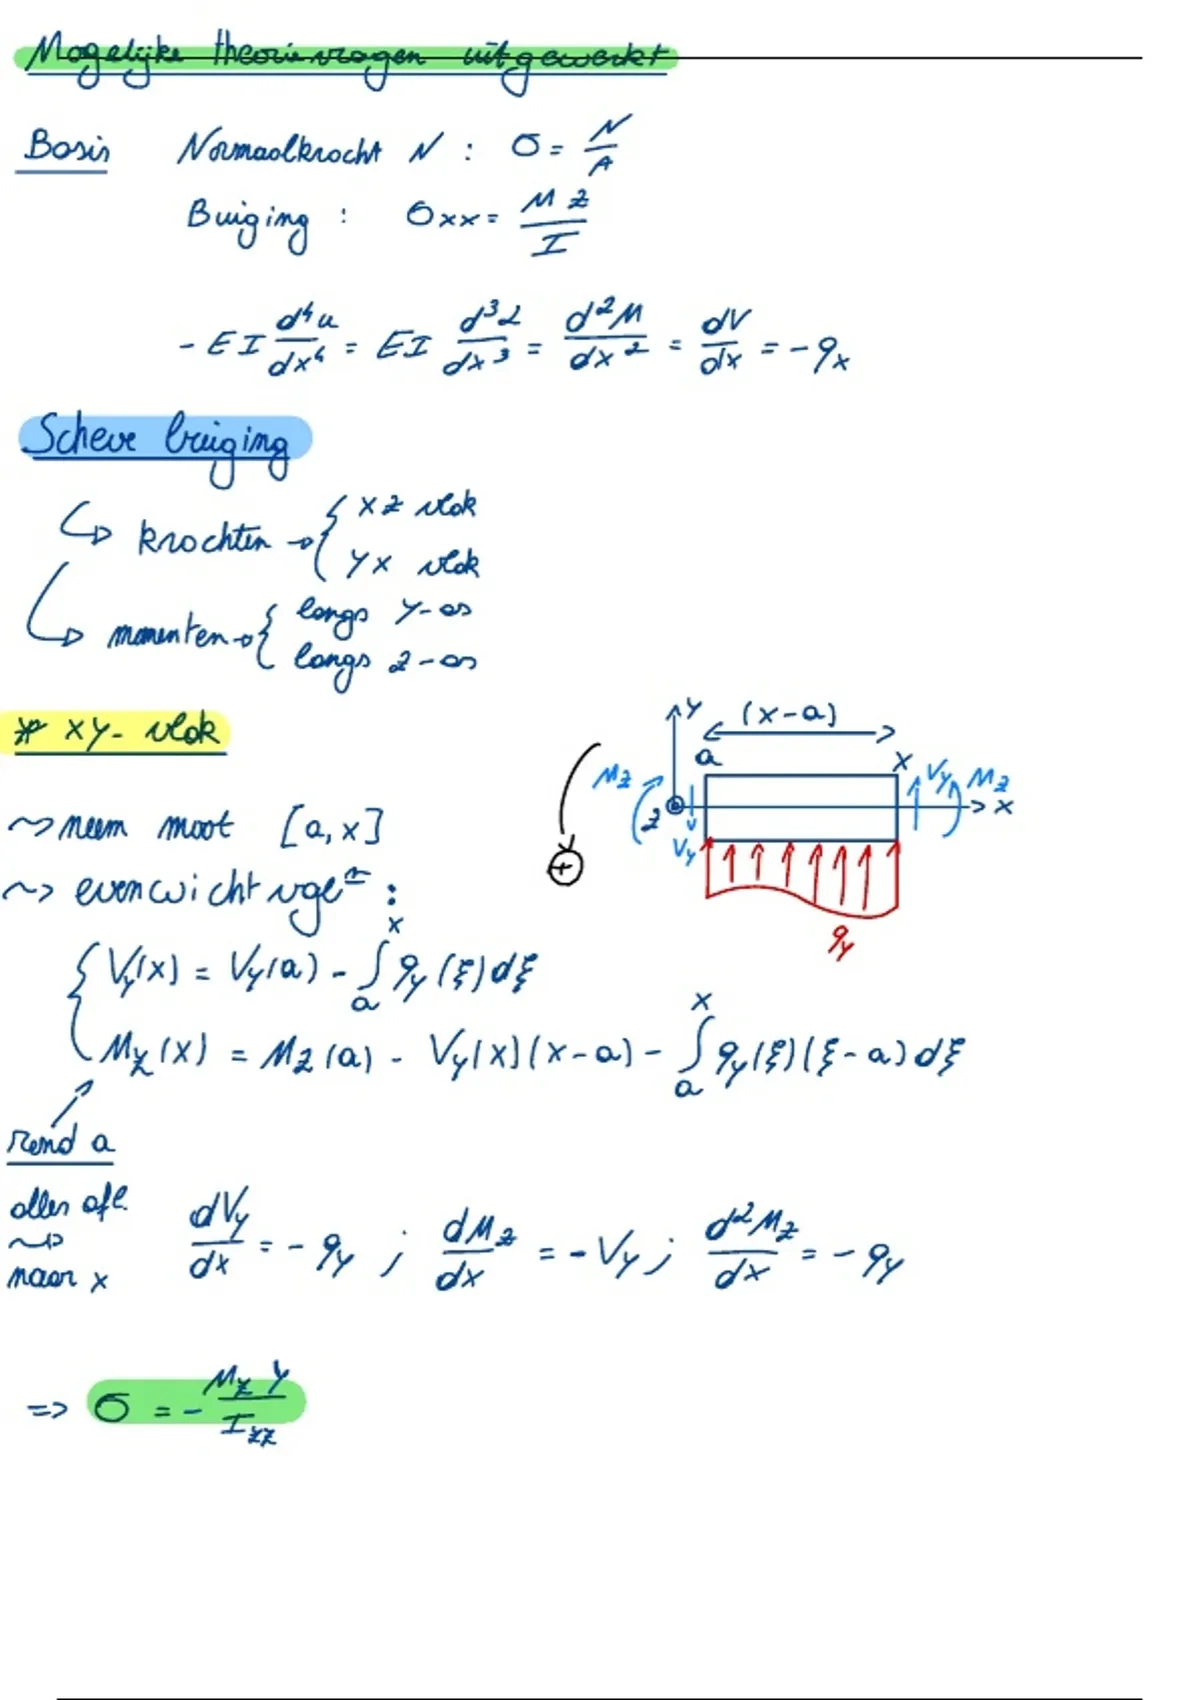 Mogelijke theorievragen uitgewerkt
Basis Normaalkracht N : σ = N/A
Buiging : σxx = M z / I
- EI d⁴u/dx⁴ = EI d³α/dx³ = d²M/dx² = dV/dx = - qx
Scheve buiging
↳ krachten → { xz vlak
yx vlak
↳ momenten → { langs y-as
langs z-as
* xy- vlak
y (x-a)
a x Vy Mz x
Mz z Vy
+
qy
~> neem moot [a,x]
~> evenwicht vgl^n :
{ Vy(x) = Vy(a) - ∫ₐˣ qy(ξ)dξ
Mz(x) = Mz(a) - Vy(x)(x-a) - ∫ₐˣ qy(ξ)(ξ-a)dξ
rond a
alles afl. naar x ~> dVy/dx = - qy ; dMz/dx = - Vy ; d²Mz/dx² = - qy
=> σ = - Mz y / Izz